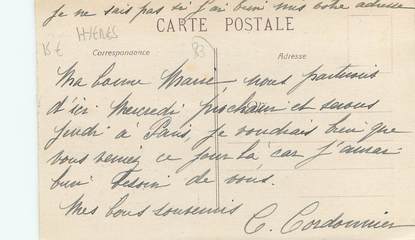 Je ne sais pas si j'ai bien mis votre adresse
CARTE POSTALE
HYÈRES
15 €
83
Correspondance
Adresse
Ma bonne Marie, nous partirons
d'ici Mercredi prochain et serons
Jeudi à Paris, je voudrais bien que
vous veniez ce jour là car j'aurai
bien besoin de vous.
Mes bons souvenirs
C. Cordonnier